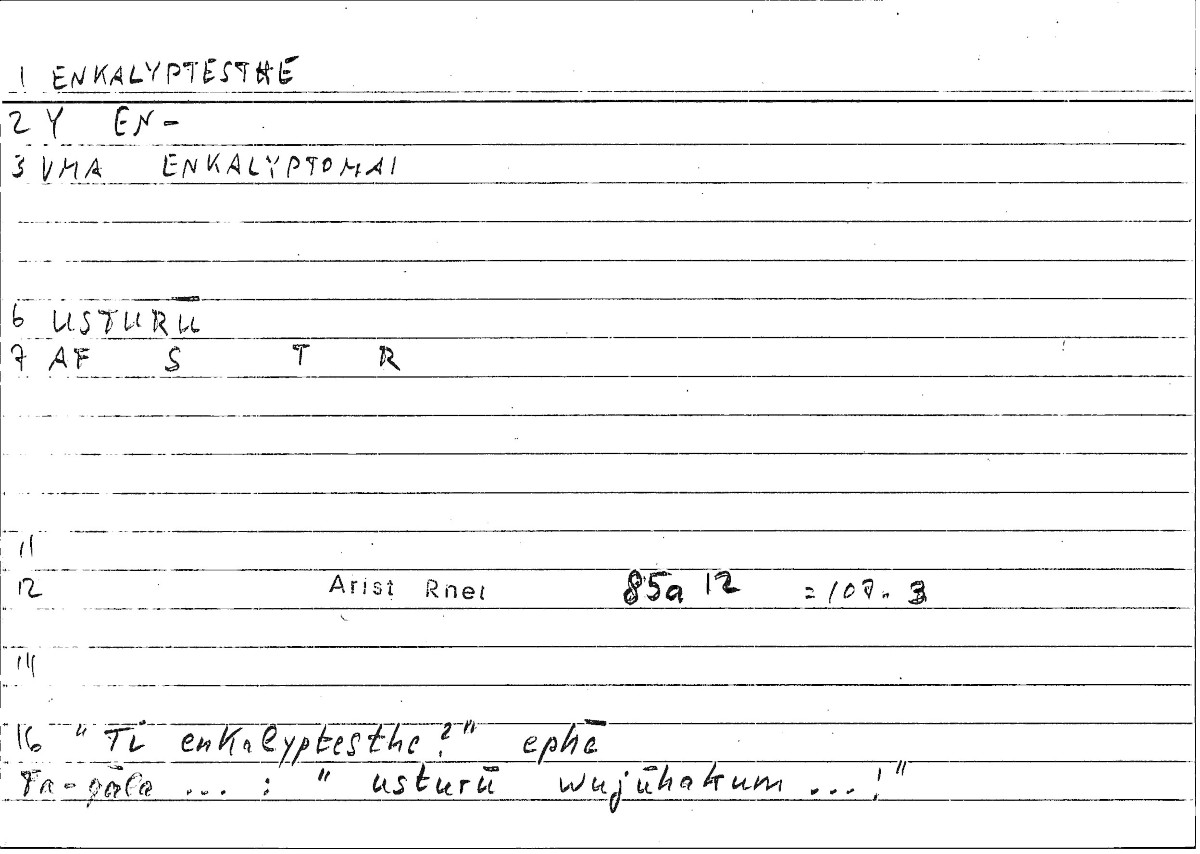 1 ENKALYPTESTHE
2 Y EN-
3 VMA ENKALYPTOMAI
6 USTURŪ
7 AF S T R
11
12 Arist Rhet 85a 12 = 107. 3
14
16 "Ti enkalyptesthe?" ephē
Fa-qāla ... : " usturū wujūhakum ... !"